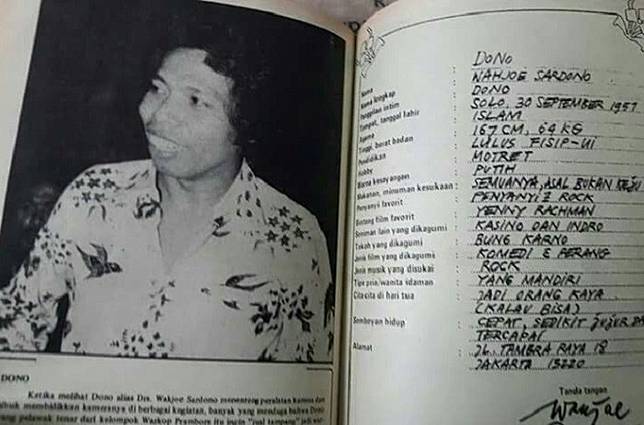 DONO
Ketika melihat Dono alias Drs. Wakjoe Sardono menenteng peralatan kamera dan
sibuk membalikkan kameranya di berbagai kegiatan, banyak yang menduga bahwa Dono
yang pelawak tenar dari kelompok Warkop Prambors itu ingin "jual tampang" jadi
Nama : DONO
Nama lengkap : WAHJOE SARDONO
Panggilan intim : DONO
Tempat, tanggal lahir : SOLO, 30 SEPTEMBER 1951
Agama : ISLAM
Tinggi, berat badan : 167 CM, 64 KG
Pendidikan : LULUS FISIP-UI
Hobby : MOTRET
Warna kesayangan : PUTIH
Makanan, minuman kesukaan : SEMUANYA, ASAL BUKAN KEJU
Penyanyi favorit : PENYANYI2 ROCK
Bintang film favorit : YENNY RACHMAN
Seniman lain yang dikagumi : KASINO DAN INDRO
Tokoh yang dikagumi : BUNG KARNO
Jenis film yang dikagumi : KOMEDI & PERANG
Jenis musik yang disukai : ROCK
Tipe pria/wanita idaman : YANG MANDIRI
Cita-cita di hari tua : JADI ORANG KAYA
(KALAU BISA)
Semboyan hidup : CEPAT, SEDIKIT JUJUR DA
TERCAPAI
Alamat : JL. TAMBRA RAYA 18
JAKARTA 13220
Tanda tangan